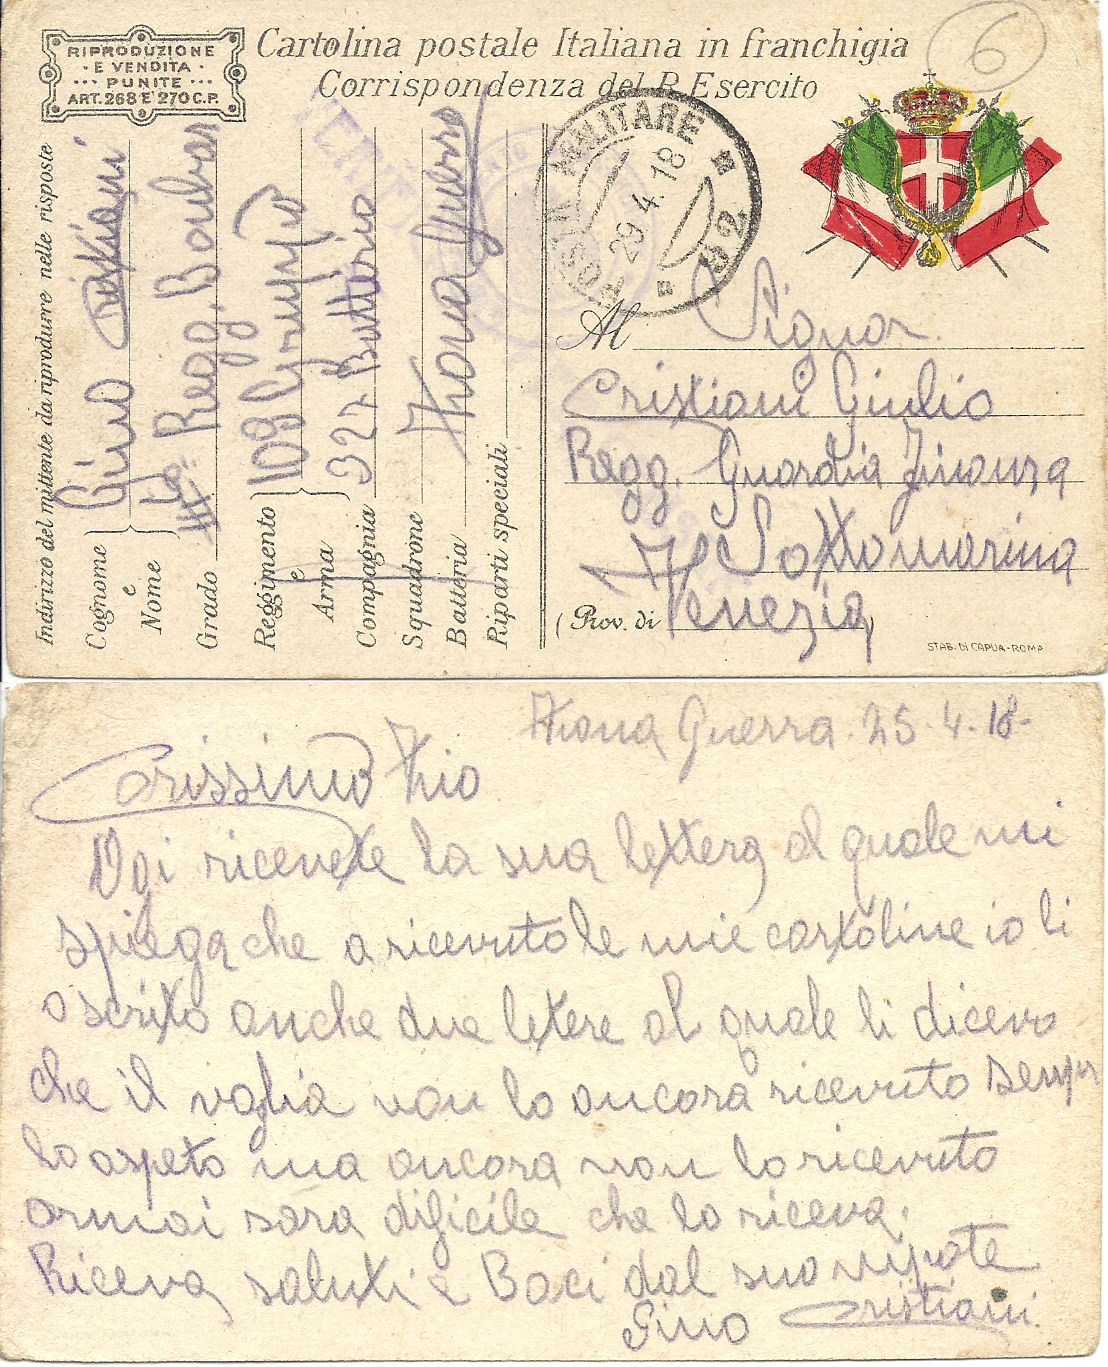 RIPRODUZIONE
E VENDITA
PUNITE
ART. 268 E 270 C.P.
Cartolina postale Italiana in franchigia
Corrispondenza del R. Esercito
6
POSTA MILITARE
29.4.18
Indirizzo del mittente da riprodurre nelle risposte
Cognome e Nome Gino Cristiani
Grado Regg. Bombar
Reggimento e Arma 108 Gruppo
Compagnia 327 Batteria
Squadrone
Batteria Zona Guerra
Riparti speciali
Al Signor
Cristiani Giulio
Regg. Guardia Finanza
Sottomarina
(Prov. di Venezia)
STAB. DI CAPUA-ROMA
Zona Guerra. 25.4.18-
Carissimo Zio
Ogi ricevete la sua lettera al quale mi
spiega che a ricevuto le mie cartoline io li
o scrito anche due letere al quale li dicevo
che il vaglia non lo ancora ricevuto sempr
lo aspeto ma ancora non lo ricevuto
ormai sara dificile che lo riceva.
Riceva saluti e Baci dal suo nipote
Gino Cristiani